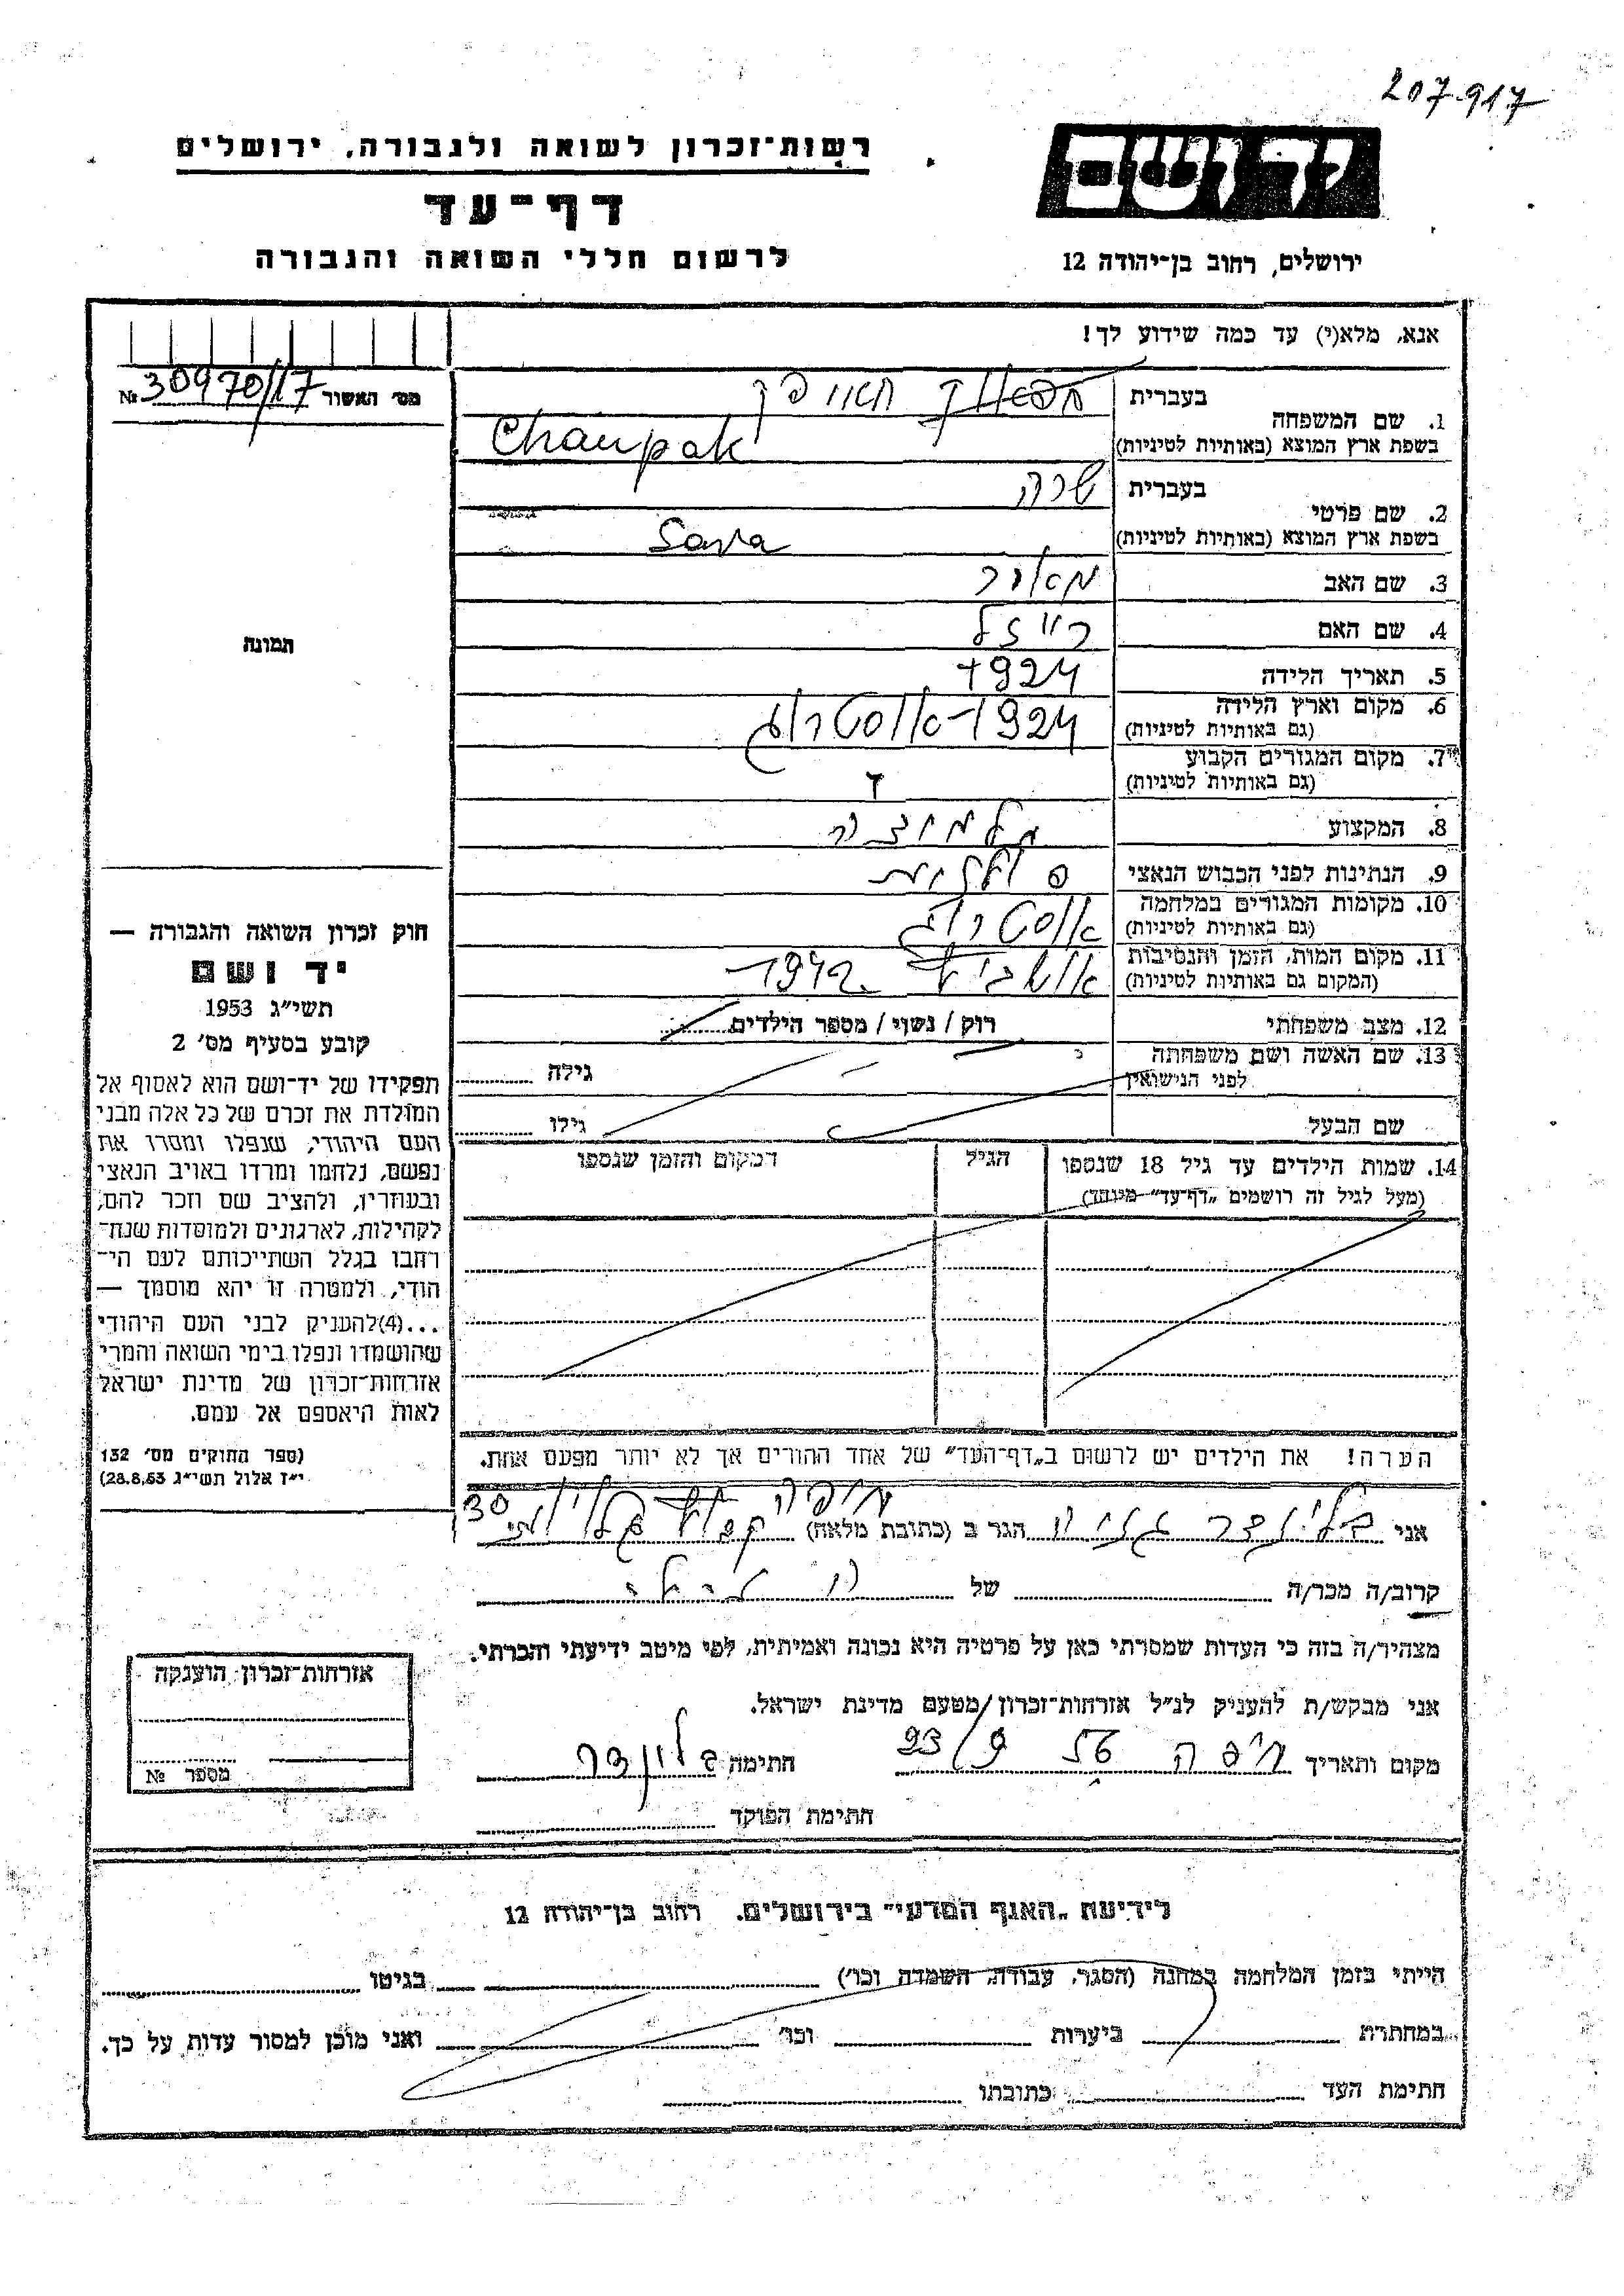 207.917
רשות־זכרון לשואה ולגבורה, ירושלים
יד ושם
דף־עד
לרשום חללי השואה והגבורה
ירושלים, רחוב בן־יהודה 12
אנא, מלא(י) עד כמה שידוע לך!
מס׳ האשור 30970/17 №
1. שם המשפחה
בעברית
בשפת ארץ המוצא (באותיות לטיניות) Chaupak
2. שם פרטי
בעברית שרה
בשפת ארץ המוצא (באותיות לטיניות) Sara
3. שם האב מאיר
4. שם האם רייזל
5. תאריך הלידה 1924
6. מקום וארץ הלידה 1924
(גם באותיות לטיניות)
7. מקום המגורים הקבוע
(גם באותיות לטיניות)
8. המקצוע
9. הנתינות לפני הכבוש הנאצי פולנית
10. מקומות המגורים במלחמה
(גם באותיות לטיניות)
11. מקום המות, הזמן והנסיבות 1942
(המקום גם באותיות לטיניות)
12. מצב משפחתי רוק / נשוי / מספר הילדים
13. שם האשה ושם משפחתה גילה
לפני הנישואין
שם הבעל גילו
14. שמות הילדים עד גיל 18 שנספו הגיל המקום והזמן שנספו
(מעל לגיל זה רושמים „דף־עד״ מיוחד)
הערה! את הילדים יש לרשום ב„דף־העד״ של אחד ההורים אך לא יותר מפעם אחת.
תמונה
חוק זכרון השואה והגבורה —
יד ושם
תשי״ג 1953
קובע בסעיף מס׳ 2
תפקידו של יד־ושם הוא לאסוף אל
המולדת את זכרם של כל אלה מבני
העם היהודי, שנפלו ומסרו את
נפשם, נלחמו ומרדו באויב הנאצי
ובעוזריו, ולהציב שם וזכר להם,
לקהילות, לארגונים ולמוסדות שנח־
רחבו בגלל השתייכותם לעם הי־
הודי, ולמטרה זו יהא מוסמך —
...(4)להעניק לבני העם היהודי
שהושמדו ונפלו בימי השואה והמרי
אזרחות־זכרון של מדינת ישראל
לאות היאספם אל עמם.
(ספר החוקים מס׳ 132
י״ז אלול תשי״ג 28.8.53)
אני הגר ב (כתובת מלאה) חיפה 30
קרוב/ה מכר/ה של
מצהיר/ה בזה כי העדות שמסרתי כאן על פרטיה היא נכונה ואמיתית, לפי מיטב ידיעתי והכרתי.
אני מבקש/ת להעניק לנ״ל אזרחות־זכרון/מטעם מדינת ישראל.
מקום ותאריך חיפה חתימה
חתימת הפוקד
אזרחות־זכרון הוענקה
מספר №
לידיעת „האגף המדעי״ בירושלים. רחוב בן־יהודה 12
הייתי בזמן המלחמה במחנה (הסגר, עבודה, השמדה וכו׳) בגיטו
במחתרת ביערות וכו׳ ואני מוכן למסור עדות על כך.
חתימת העד כתובתו